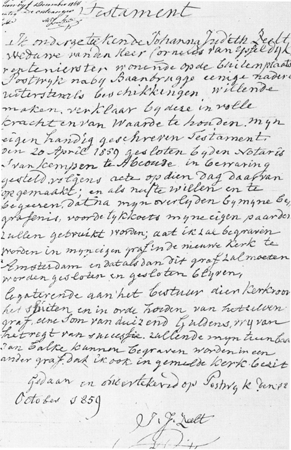 Testament
Ik ondergetekende Johanna Judith Zeelt,
Weduwe van den Heer Cornelis van
rentenierster wonende op de buitenplaats
Postwyk naby Baambrugge eenige nadere
uiterste wils beschikkingen, willende
maken, verklaar by deze in volle
kracht en van Waarde te houden, myn
eigen handig geschreven Testament
Den 20 April 1859 gesloten by den Notaris
J van Kempen te Abcoude in bewaring
gesteld, volgens acte op dien dag daarvan
opgemaakt; en als nu te willen en te
begeeren, dat na myn overlyden by myne be,
grafenis, voor de lykkoets myne eigen paarden
zullen gebruikt worden; dat ik zal begraven
worden in myn eigen graf in de nieuwe kerk te
Amsterdam en dat als dan dit graf zal moeten
worden gesloten en gesloten blyven,
legaterende aan het bestuur dier kerk voor
het sluiten en in orde houden van het zelven
graf, eene som van duizend Guldens, vry van
het regt van successie, zullende myn tuinbaas
Jan Balke kunnen begraven worden in een
ander graf dat ik ook in gemelde kerk bezit
Gedaan en onderteekend op Postwyk den 12
October 1859
J. J. Zeelt